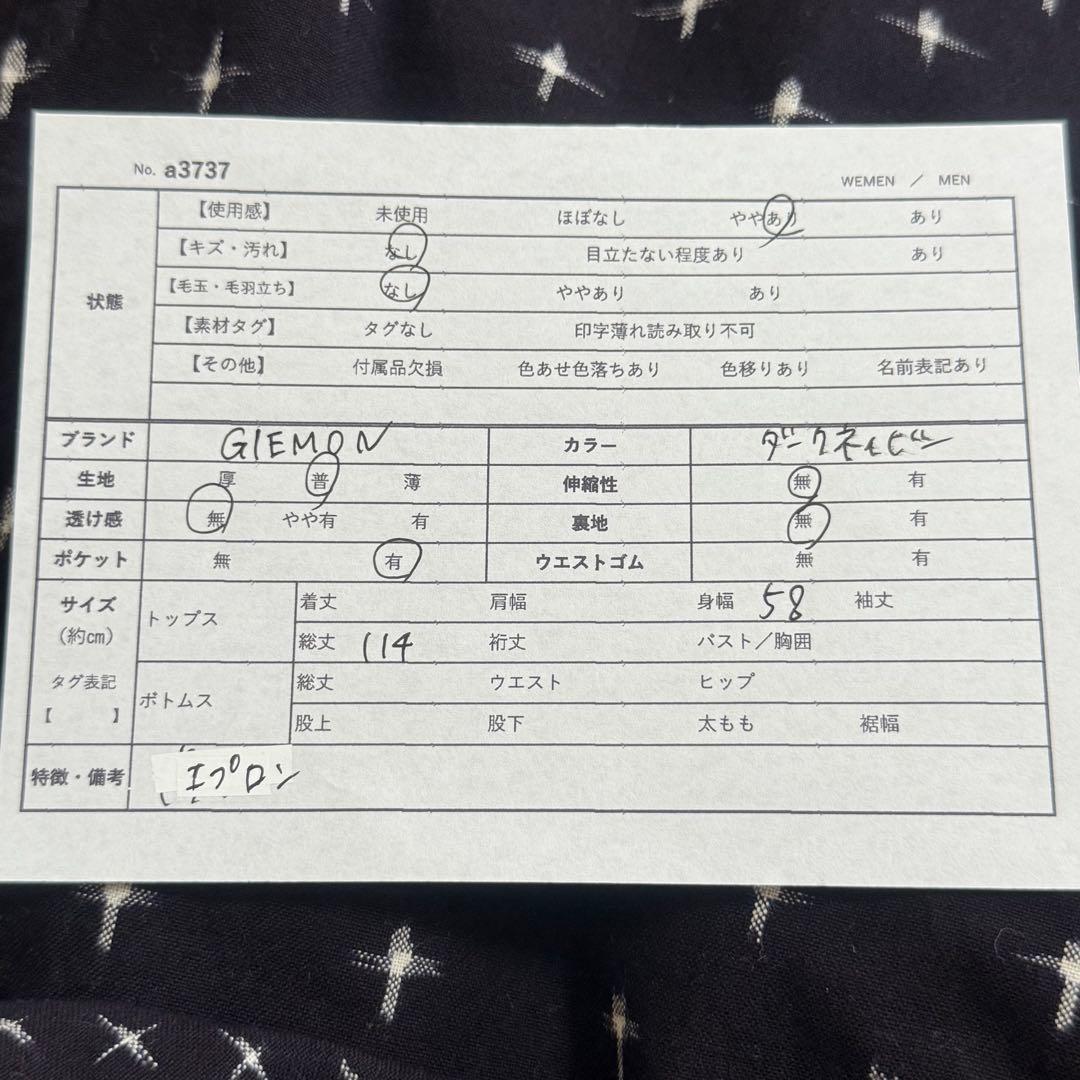 No. a3737
WEMEN / MEN
状態
【使用感】 未使用 ほぼなし ややあり あり
【キズ・汚れ】 なし 目立たない程度あり あり
【毛玉・毛羽立ち】 なし ややあり あり
【素材タグ】 タグなし 印字薄れ読み取り不可
【その他】 付属品欠損 色あせ色落ちあり 色移りあり 名前表記あり
ブランド GIEMON カラー ダークネイビー
生地 厚 普 薄 伸縮性 無 有
透け感 無 やや有 有 裏地 無 有
ポケット 無 有 ウエストゴム 無 有
サイズ
(約cm)
タグ表記
【 】
トップス
着丈 肩幅 身幅 58 袖丈
総丈 114 裄丈 バスト／胸囲
ボトムス
総丈 ウエスト ヒップ
股上 股下 太もも 裾幅
特徴・備考 エプロン